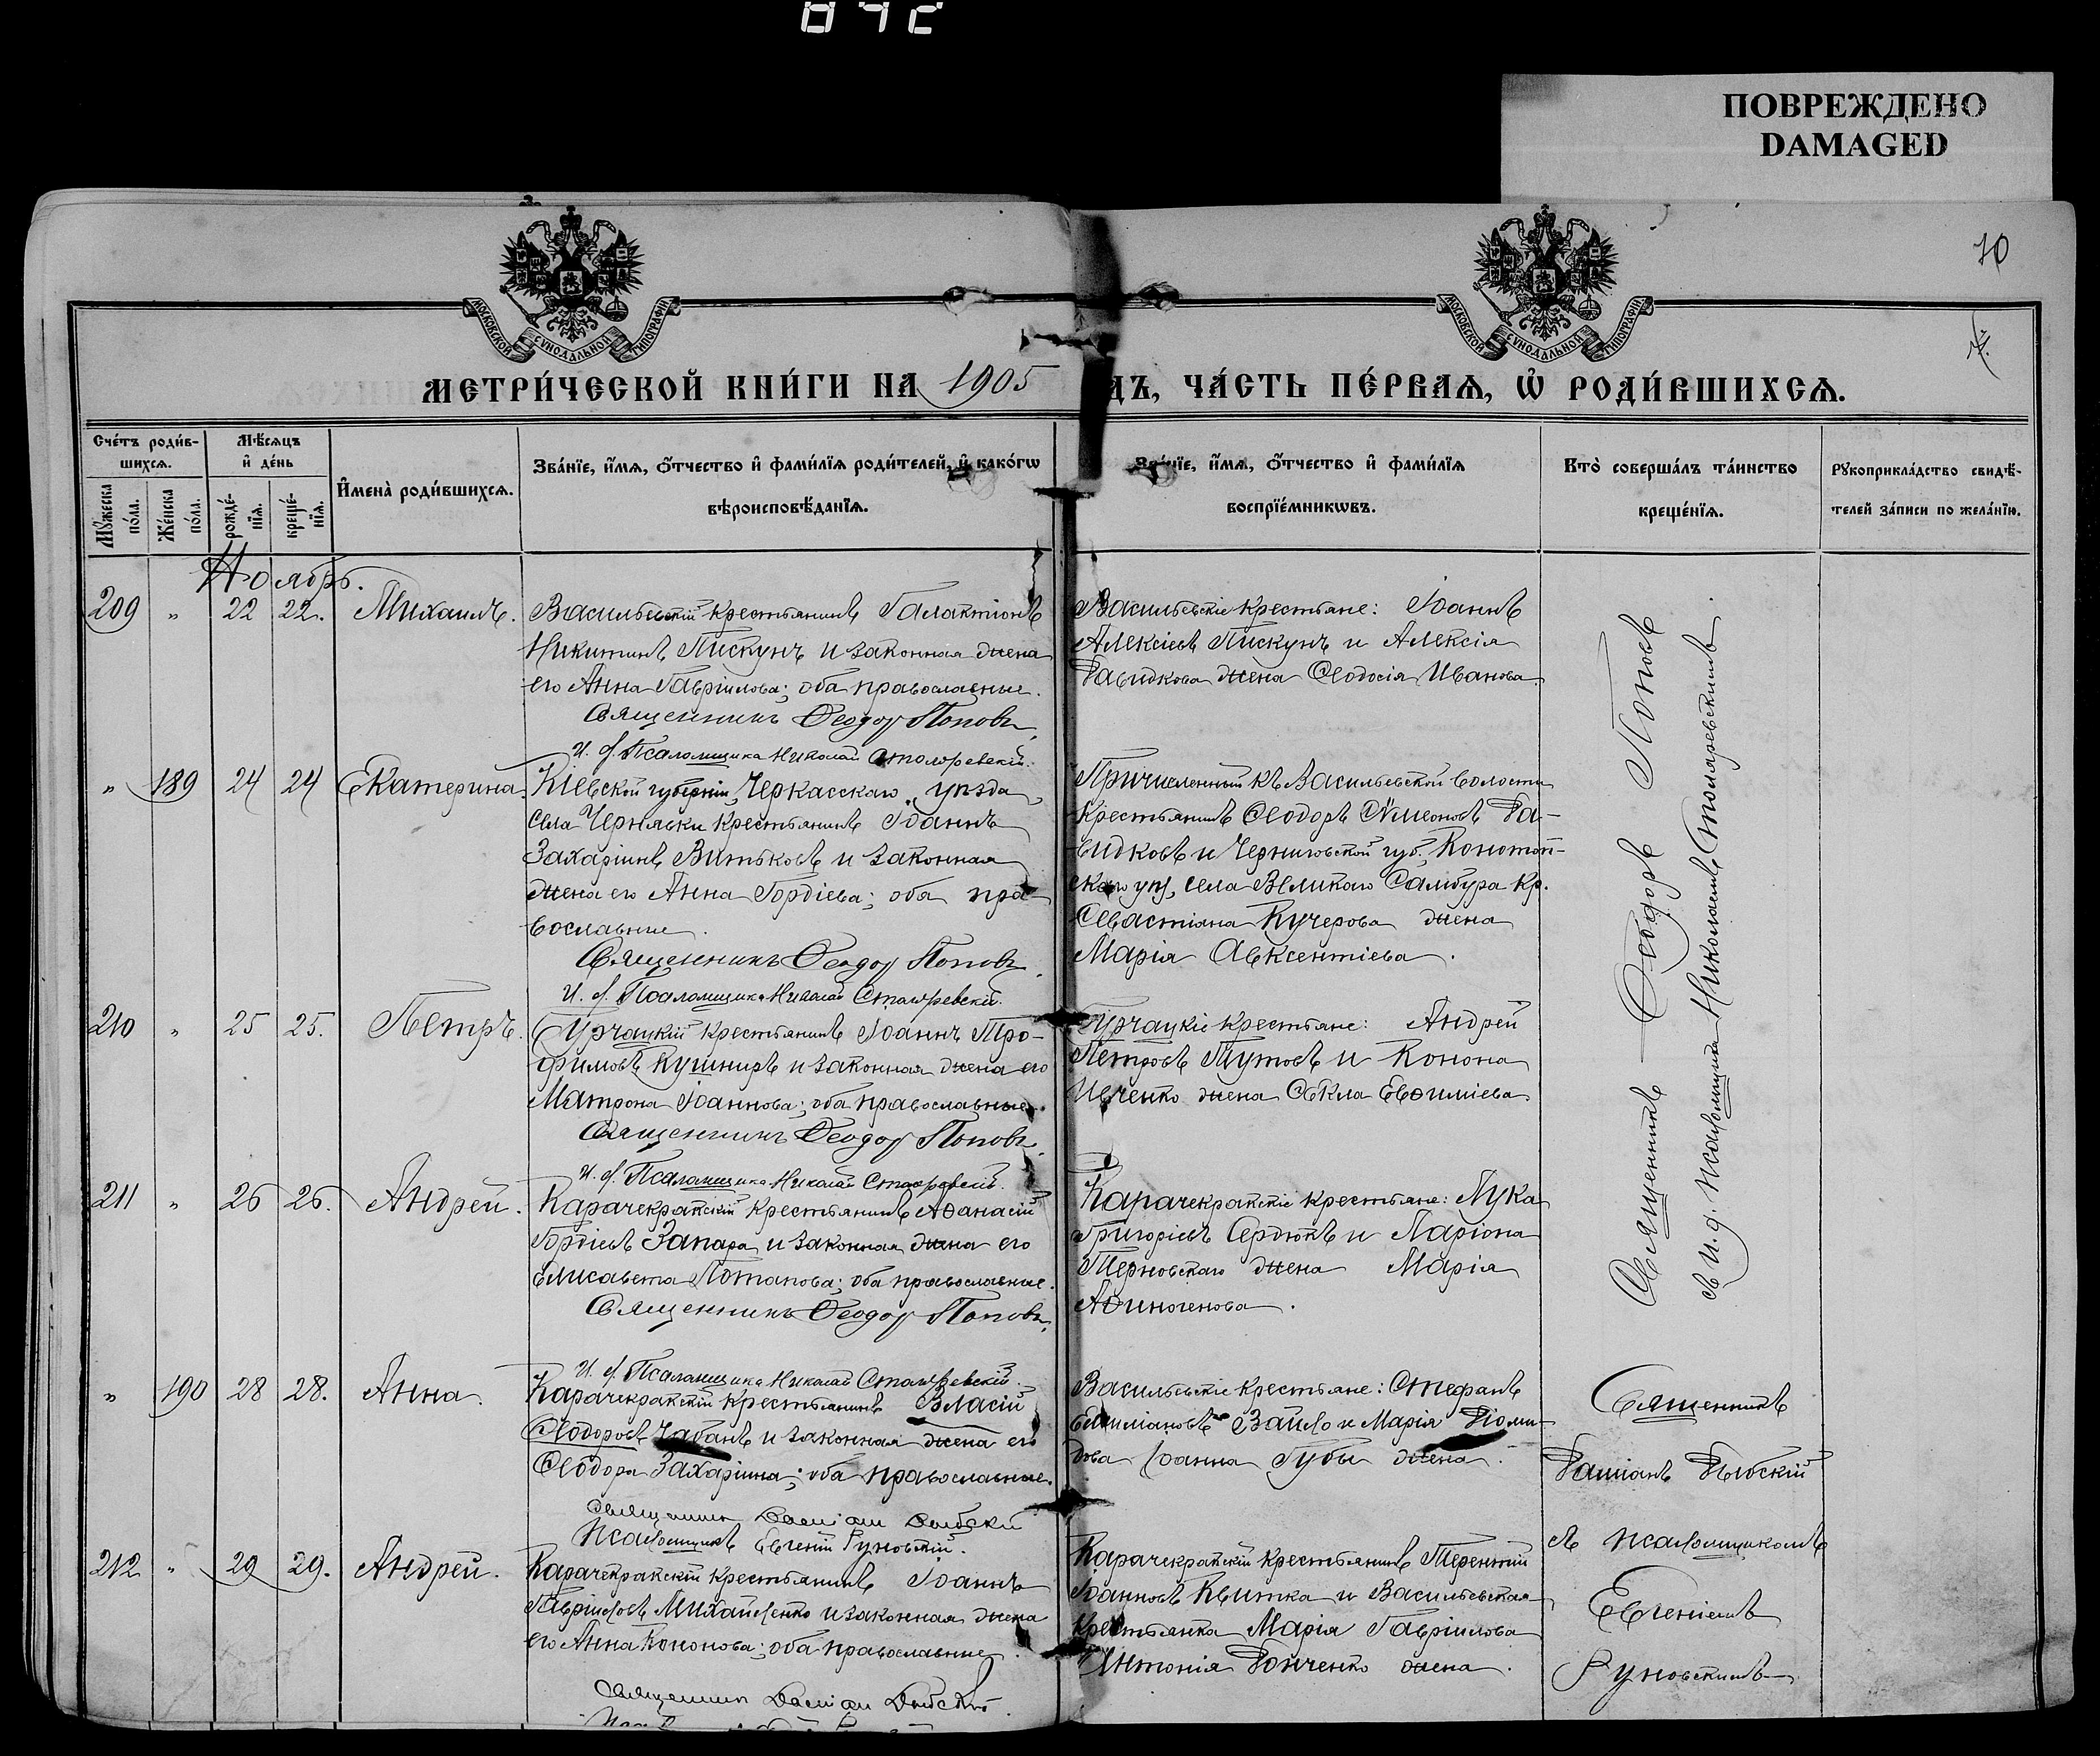 ПОВРЕЖДЕНО
DAMAGED
МОСКОВСКОЙ СѴНОДАЛЬНОЙ ТИПОГРАФІИ
МОСКОВСКОЙ СѴНОДАЛЬНОЙ ТИПОГРАФІИ
МЕТРИ́ЧЕСКОЙ КНИ́ГИ НА 1905
ДЪ, ЧА́СТЬ ПЕ́РВАѦ, Ѡ҆ РОДИ́ВШИХСѦ.
Сче́тъ роди́в-
шихсѧ.
Мѣ́сѧцъ
и҆ де́нь
Мꙋ́жеска
по́ла.
Же́нска
по́ла.
рожде́-
нїѧ.
креще́-
нїѧ.
И҆мена̀ роди́вшихсѧ.
Зва́нїе, и҆́мѧ, ѻ҆́тчество и҆ фами́лїѧ роди́телей, и҆ како́гѡ
вѣроисповѣ́данїѧ.
Зва́нїе, и҆́мѧ, ѻ҆́тчество и҆ фами́лїѧ
воспрїе́мникѡвъ.
Кто̀ соверша́лъ та́инство
креще́нїѧ.
Рꙋкоприкла́дство свидѣ́-
телей за́писи по жела́нїю.
Ноябрь.
209 " 22 22. Михаилъ.
Васильевскій крестьянинъ Галактіонъ
Никитинъ Пискунъ и законная жена
его Анна Гавріилова; оба православные.
Священникъ Ѳеодор Поповъ
И. д. Псаломщика Николай Столяревскій.
Васильевскіе крестьяне: Іоаннъ
Алексіевъ Пискунъ и Алексія
Давидкова жена Ѳеодосія Иванова.
" 189 24 24 Екатерина.
Кіевской губерніи, Черкасскаго уѣзда,
села Чернявки крестьянинъ Іоаннъ
Захаріинъ Витьковъ и законная
жена его Анна Гордіева; оба пра-
вославные.
Священникъ Ѳеодор Поповъ
И. д. Псаломщика Николай Столяревскій.
Причисленный къ Васильевской волости
крестьянинъ Ѳеодоръ Сѵмеоновъ Да-
видковъ и Черниговской губ. Конотоп-
скаго уѣз, села Великаго Самбура кр.
Севастіана Кучерова жена
Марія Авксентіева.
210 " 25 25. Петръ.
Бурчацкій крестьянинъ Іоаннъ Тро-
фимовъ Кушниръ и законная жена его
Матрона Іоаннова; оба православные.
Священникъ Ѳеодор Поповъ
И. д. Псаломщика Николай Столяревскій.
Бурчацкіе крестьяне: Андрей
Петровъ Тутовъ и Конона
Ивченко жена Ѳекла Евѳиміева.
211 " 26 26. Андрей.
Карачекракскій крестьянинъ Аѳанасій
Гордіевъ Запара и законная жена его
Елисавета Потапова; оба православные.
Священникъ Ѳеодор Поповъ
И. д. Псаломщика Николай Столяревскій.
Карачекракскіе крестьяне: Лука
Григоріевъ Сердюкъ и Ларіона
Терновскаго жена Марія
Аѳиногенова.
Священникъ Ѳеодоръ Поповъ
съ И. д. псаломщика Николаемъ Столяревскимъ.
" 190 28 28. Анна.
Карачекракскій крестьянинъ Власій
Ѳеодоровъ Чабанъ и законная жена его
Ѳеодора Захаріина; оба православные.
Псаломщикъ Евгеній Руновскій.
Васильевскіе крестьяне: Стефанъ
Емиліановъ Заило и Марія Діоми-
дова Іоанна Губы жена.
212 " 29 29. Андрей.
Карачекракскій крестьянинъ Іоаннъ
Гавріиловъ Михайленко и законная жена
его Анна Кононова; оба православные.
Карачекракскій крестьянинъ Терентій
Іоанновъ Квитка и Васильевская
крестьянка Марія Гавріилова
Антонія Донченко жена.
Священникъ
Даміанъ
съ псаломщикомъ
Евгеніемъ
Руновскимъ